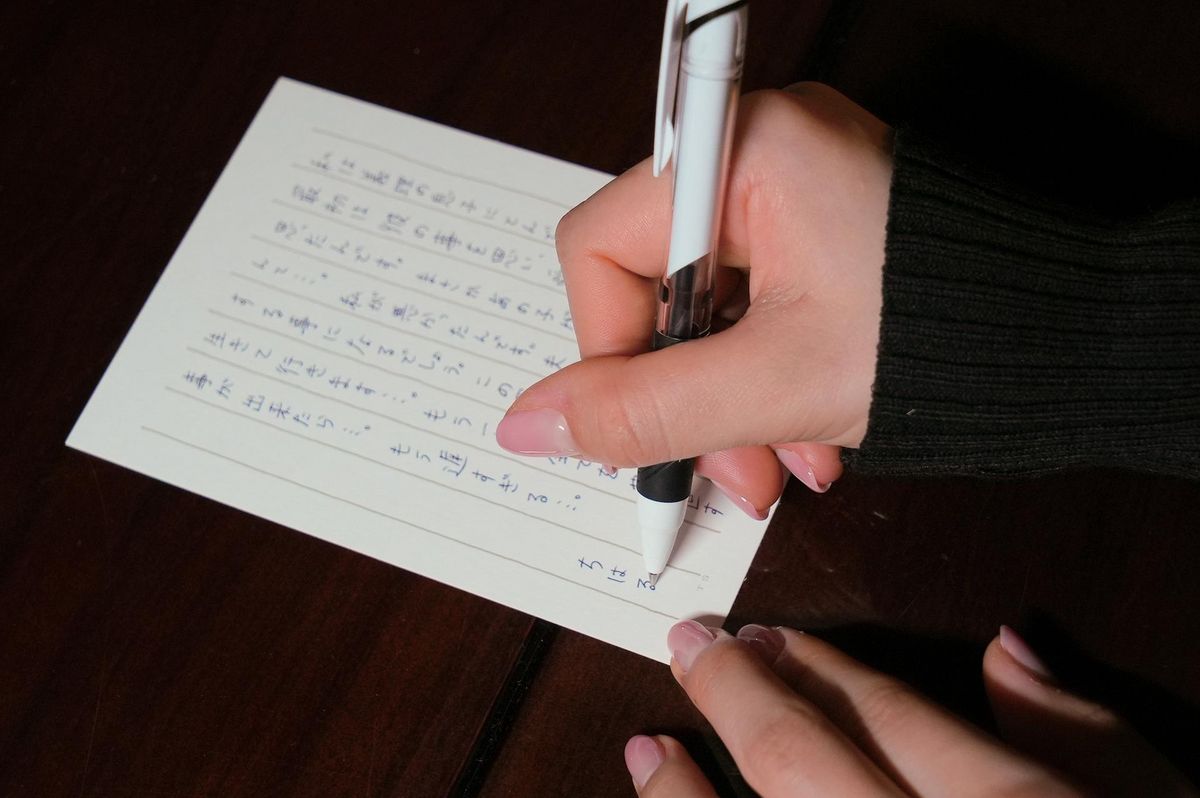 私は義理の息子にとんで
最初は彼の事を思い、
思ったんです。まさかあの子が
んて…。私が悪かったんです。ま
する事になるでしょう。この
生きて行きます…。もう一
事が出来たら…。もう遅すぎる…。
ちはる